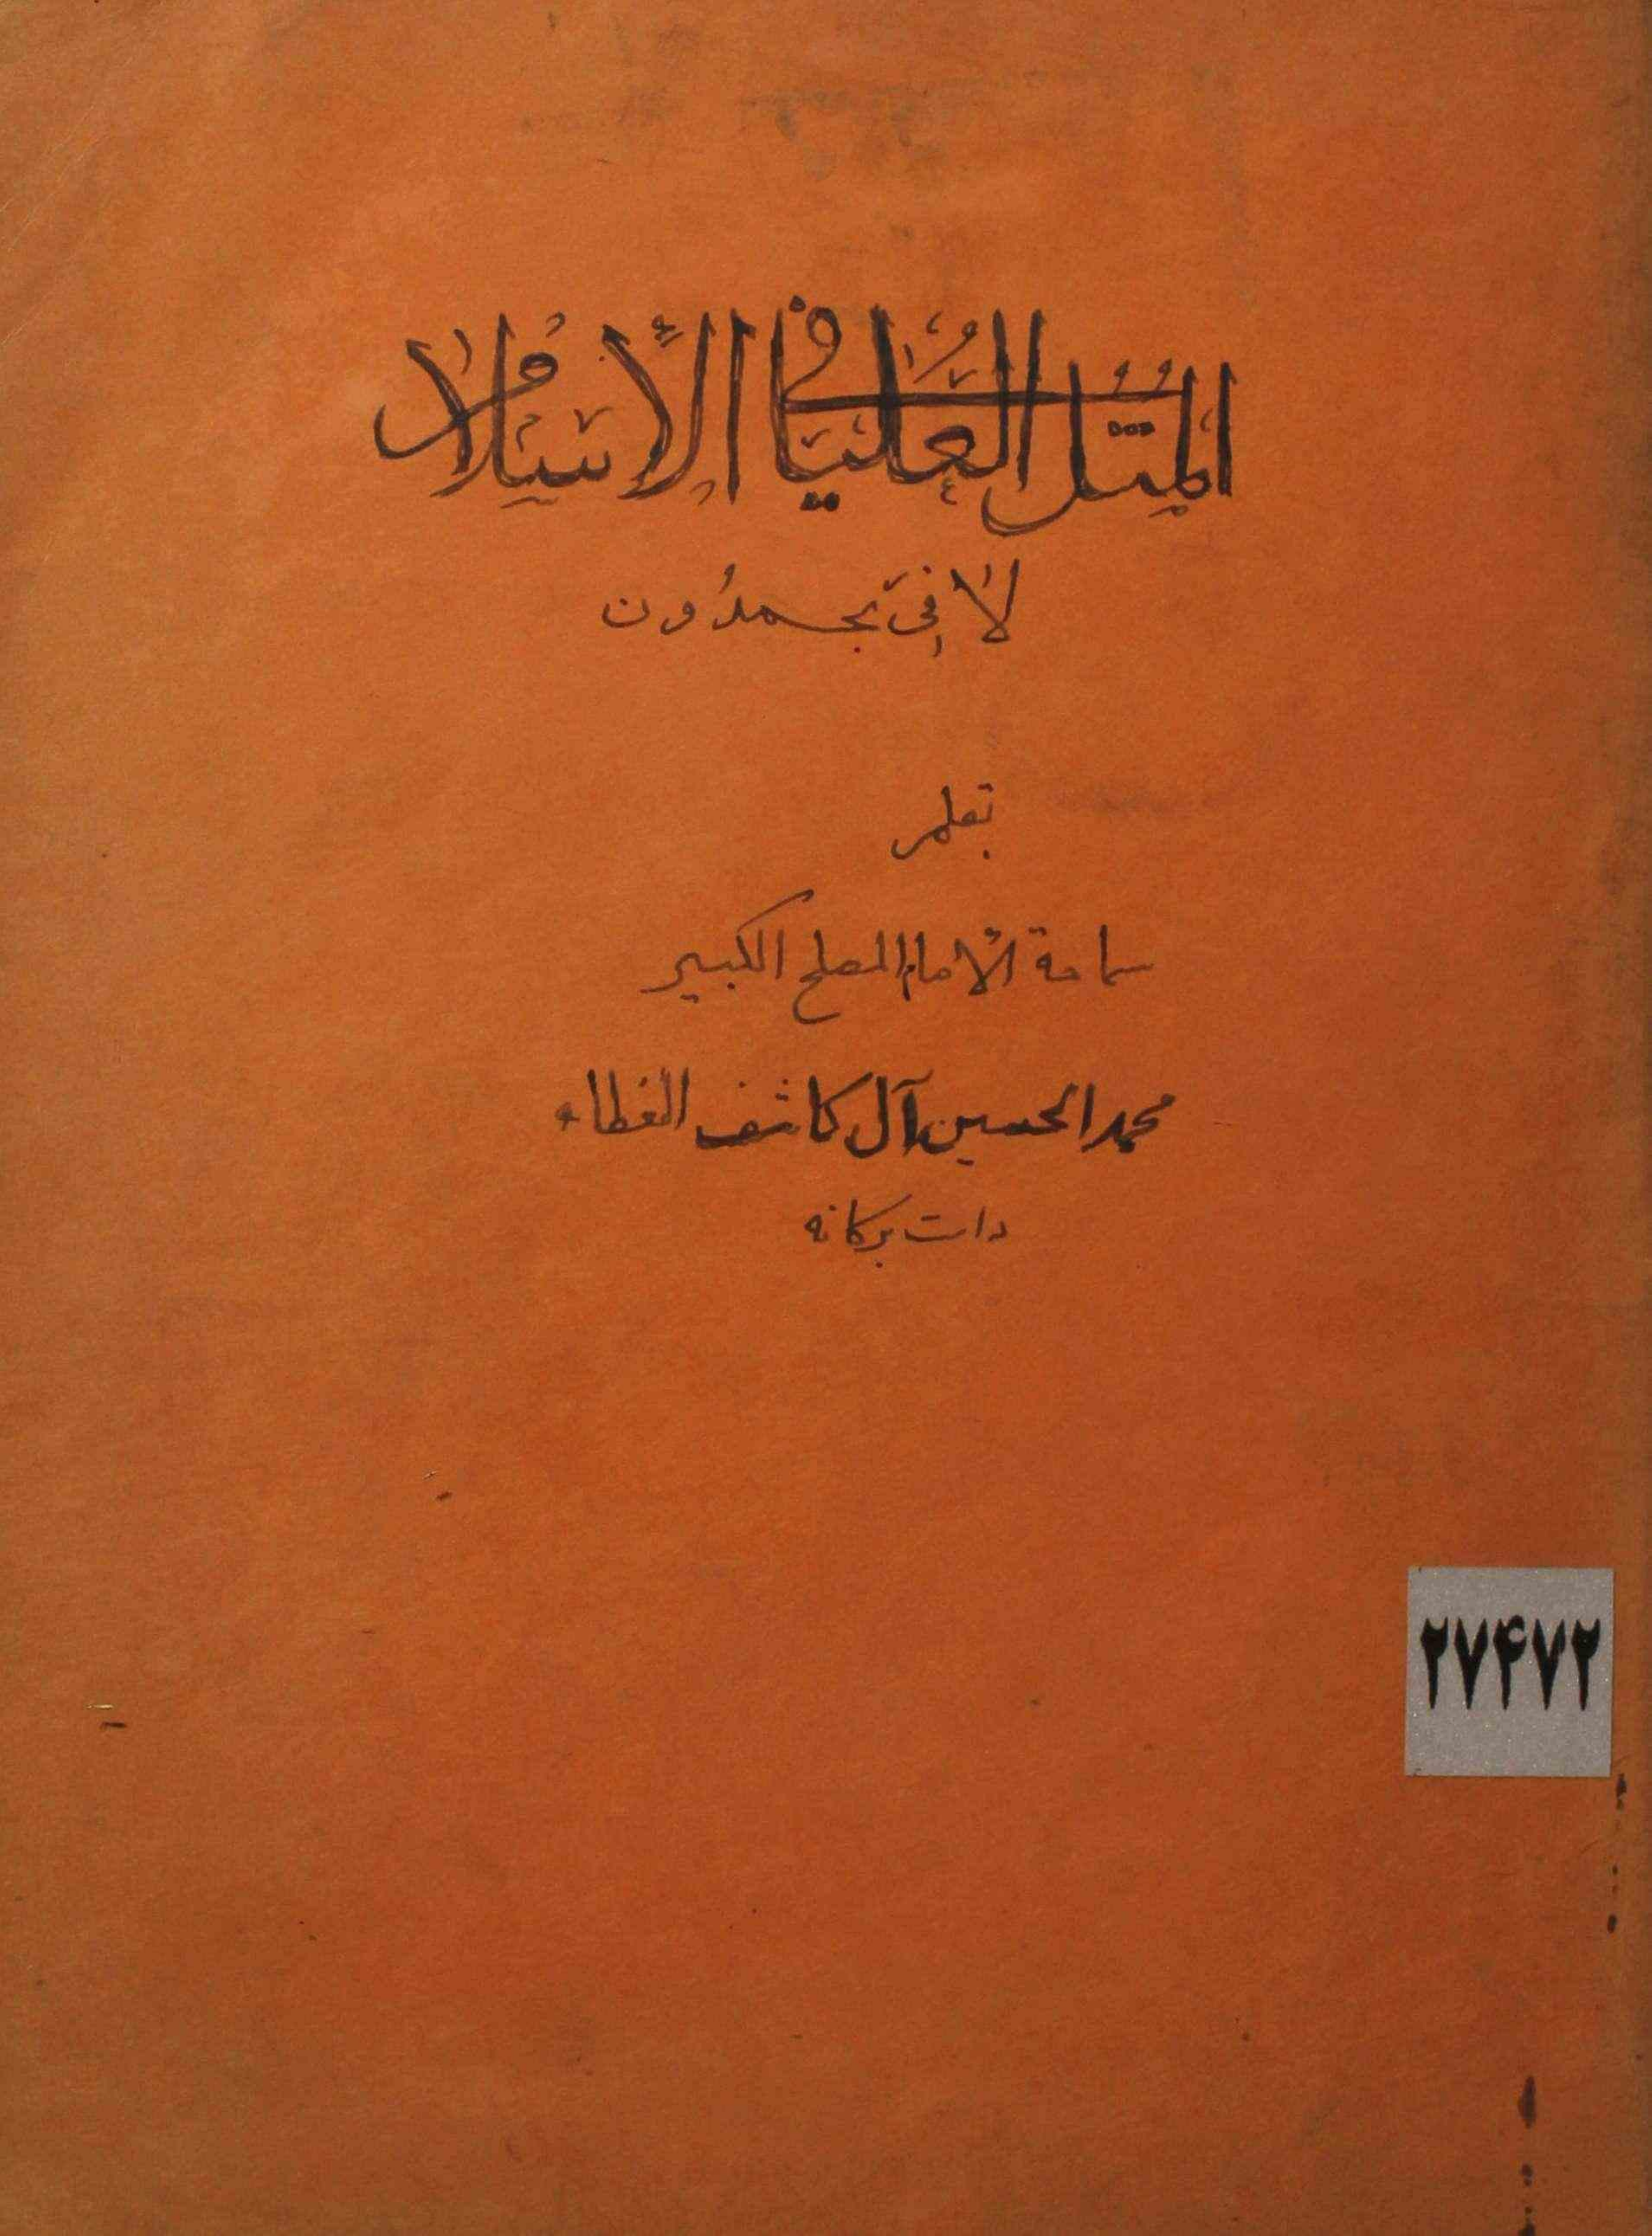 المثل العليا في الإسلام
لا في بحمدون
بقلم
سماحة الامام المصلح الكبير
محمد الحسين آل كاشف الغطاء
دامت بركاته
۲۷۴۷۲